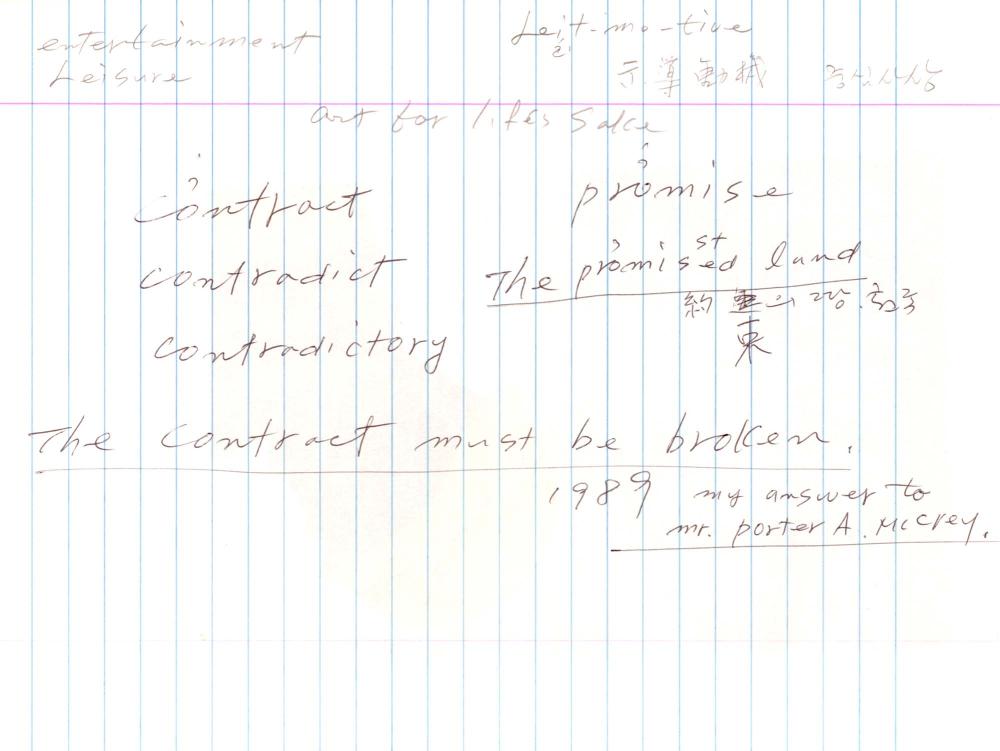 entertainment
Leisure
Leit-mo-tive
示導動機 중심사상
art for lifes sake
contract
contradict
contradictory
promise
The promised land
st
約
束
The contract must be broken.
1989 my answer to
mr. porter A. McCrey.